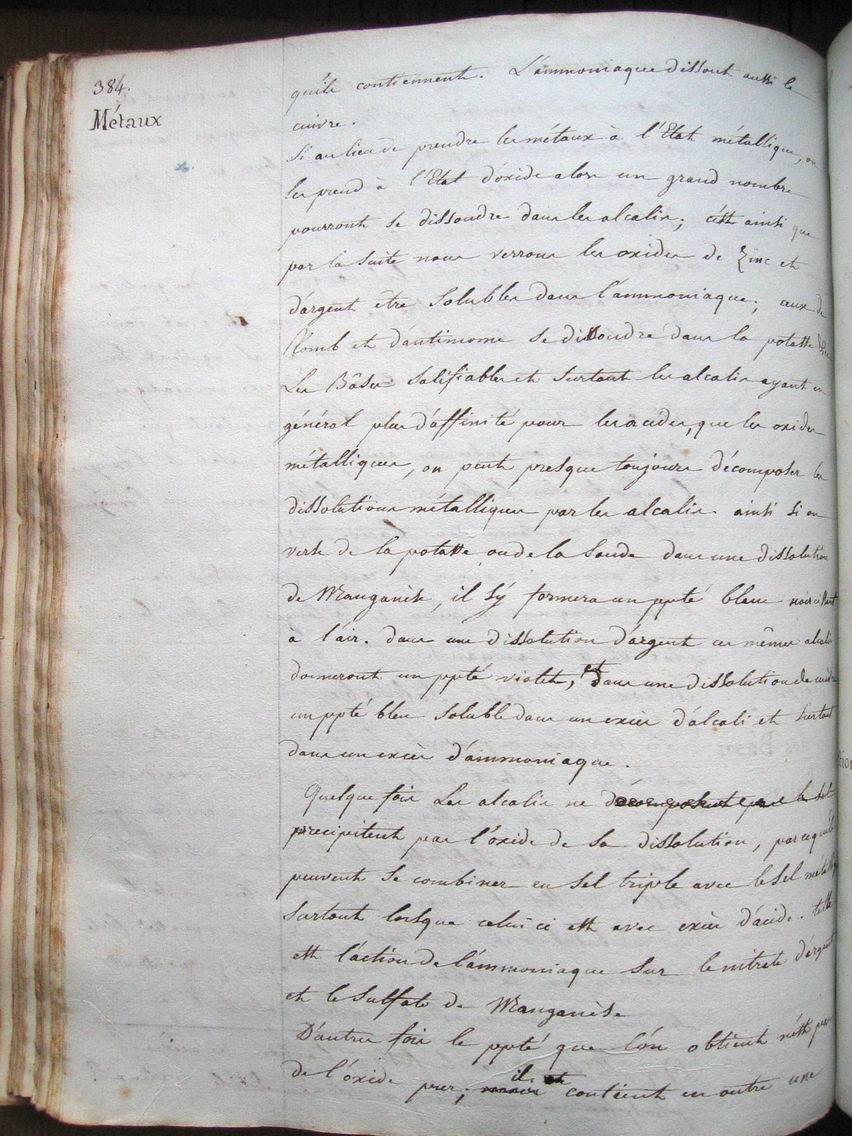 384.
Métaux
qu'ils contiennent. L'ammoniaque dissout aussi le
cuivre.
Si au lieu de prendre les métaux à l'Etat métallique, on
les prend à l'Etat d'oxide alors un grand nombre
pourront se dissoudre dans les alcalis; c'est ainsi que
par la suite nous verrons les oxides de Zinc et
d'argent être solubles dans l'ammoniaque; ceux de
Plomb et d'antimoine se dissoudre dans la potasse
Les Bâses salifiables et surtout les alcalis ayant en
général plus d'affinité pour les acides, que les oxides
métalliques, on peut presque toujours décomposer les
dissolutions métalliques par les alcalis. ainsi si on
verse de la potasse ou de la soude dans une dissolution
de Manganèse, il s'y formera un ppté blanc noircissant
à l'air. dans une dissolution d'argent ces mêmes alcalis
donneront un ppté violet, et dans une dissolution de cuivre
un ppté bleu soluble dans un excès d'alcali et surtout
dans un excès d'ammoniaque.
Quelque fois Les alcalis ne décomposent pas le sel
précipitent pas l'oxide de sa dissolution, parcequ'ils
peuvent se combiner en sel triple avec le sel métallique
surtout lorsque celui ci est avec excès d'acide. telle
est l'action de l'ammoniaque sur le nitrate d'argent
et le sulfate de Manganèse
D'autre fois le ppté que l'on obtient n'est pas
de l'oxide pur; il contient en outre une